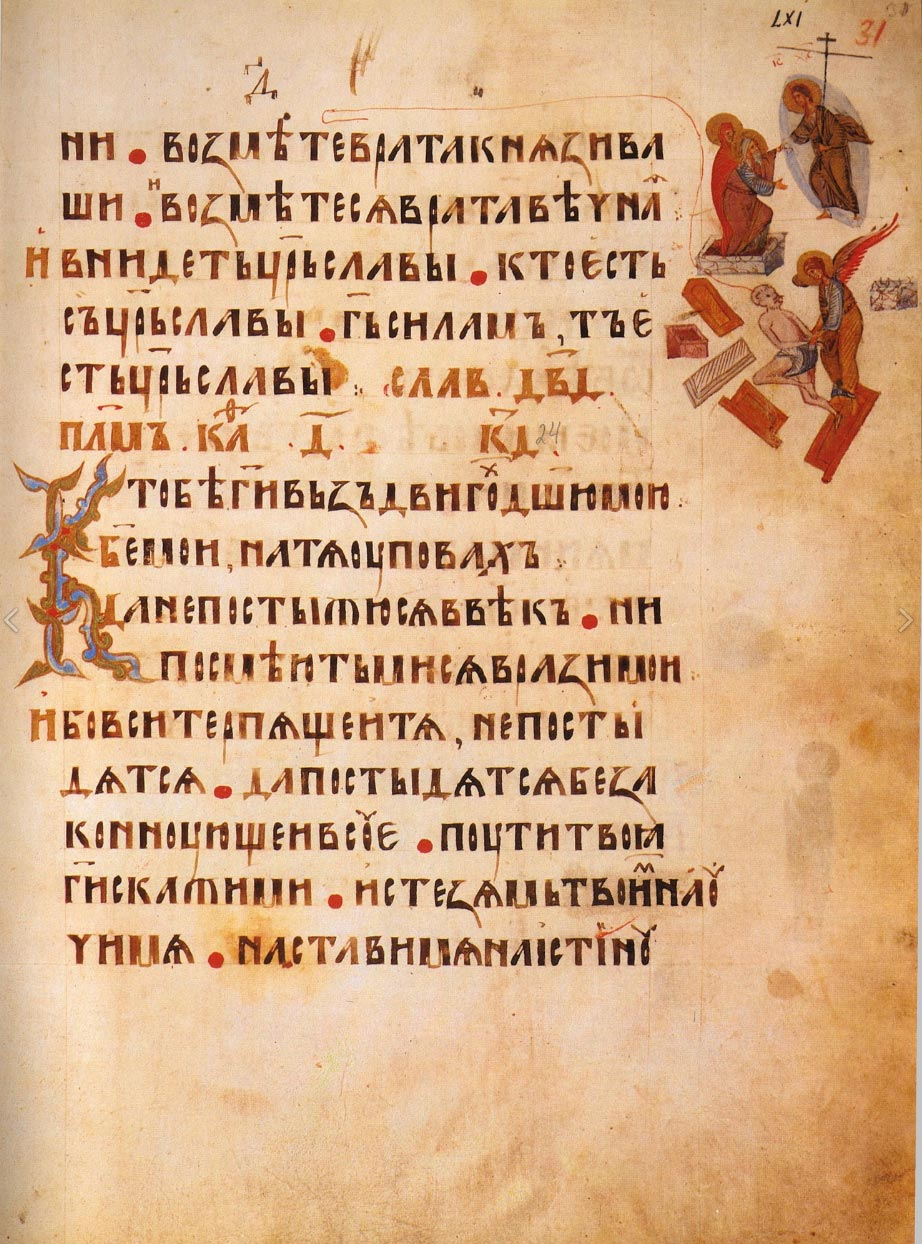 LXI
31
Д
ни · возмѣте врата кнѧзи ва
ши · и возмѣтесѧ врата вѣчнаꙗ
и внидеть ц҃рь славы · кто есть
съ ц҃рь славы · г҃ь силамъ, тъ е
сть ц҃рь славы слав. дв҃д.
п҃лмъ. к҃а . д҃ . к҃д. 24
К тобѣ г҃и въздвигохъ д҃шю мою
б҃е мои, на тѧ оуповахъ
да не постыжюсѧ в вѣкъ · ни
посмѣють ми сѧ врази мои
и бо вси терпѧщеи тѧ, не посты
дѧтсѧ · да постыдѧтсѧ беза
коннующеи всуе · поути твоꙗ
г҃и скажи ми · и стезѧмъ твоим нау
чи мѧ · настави мѧ на істіну